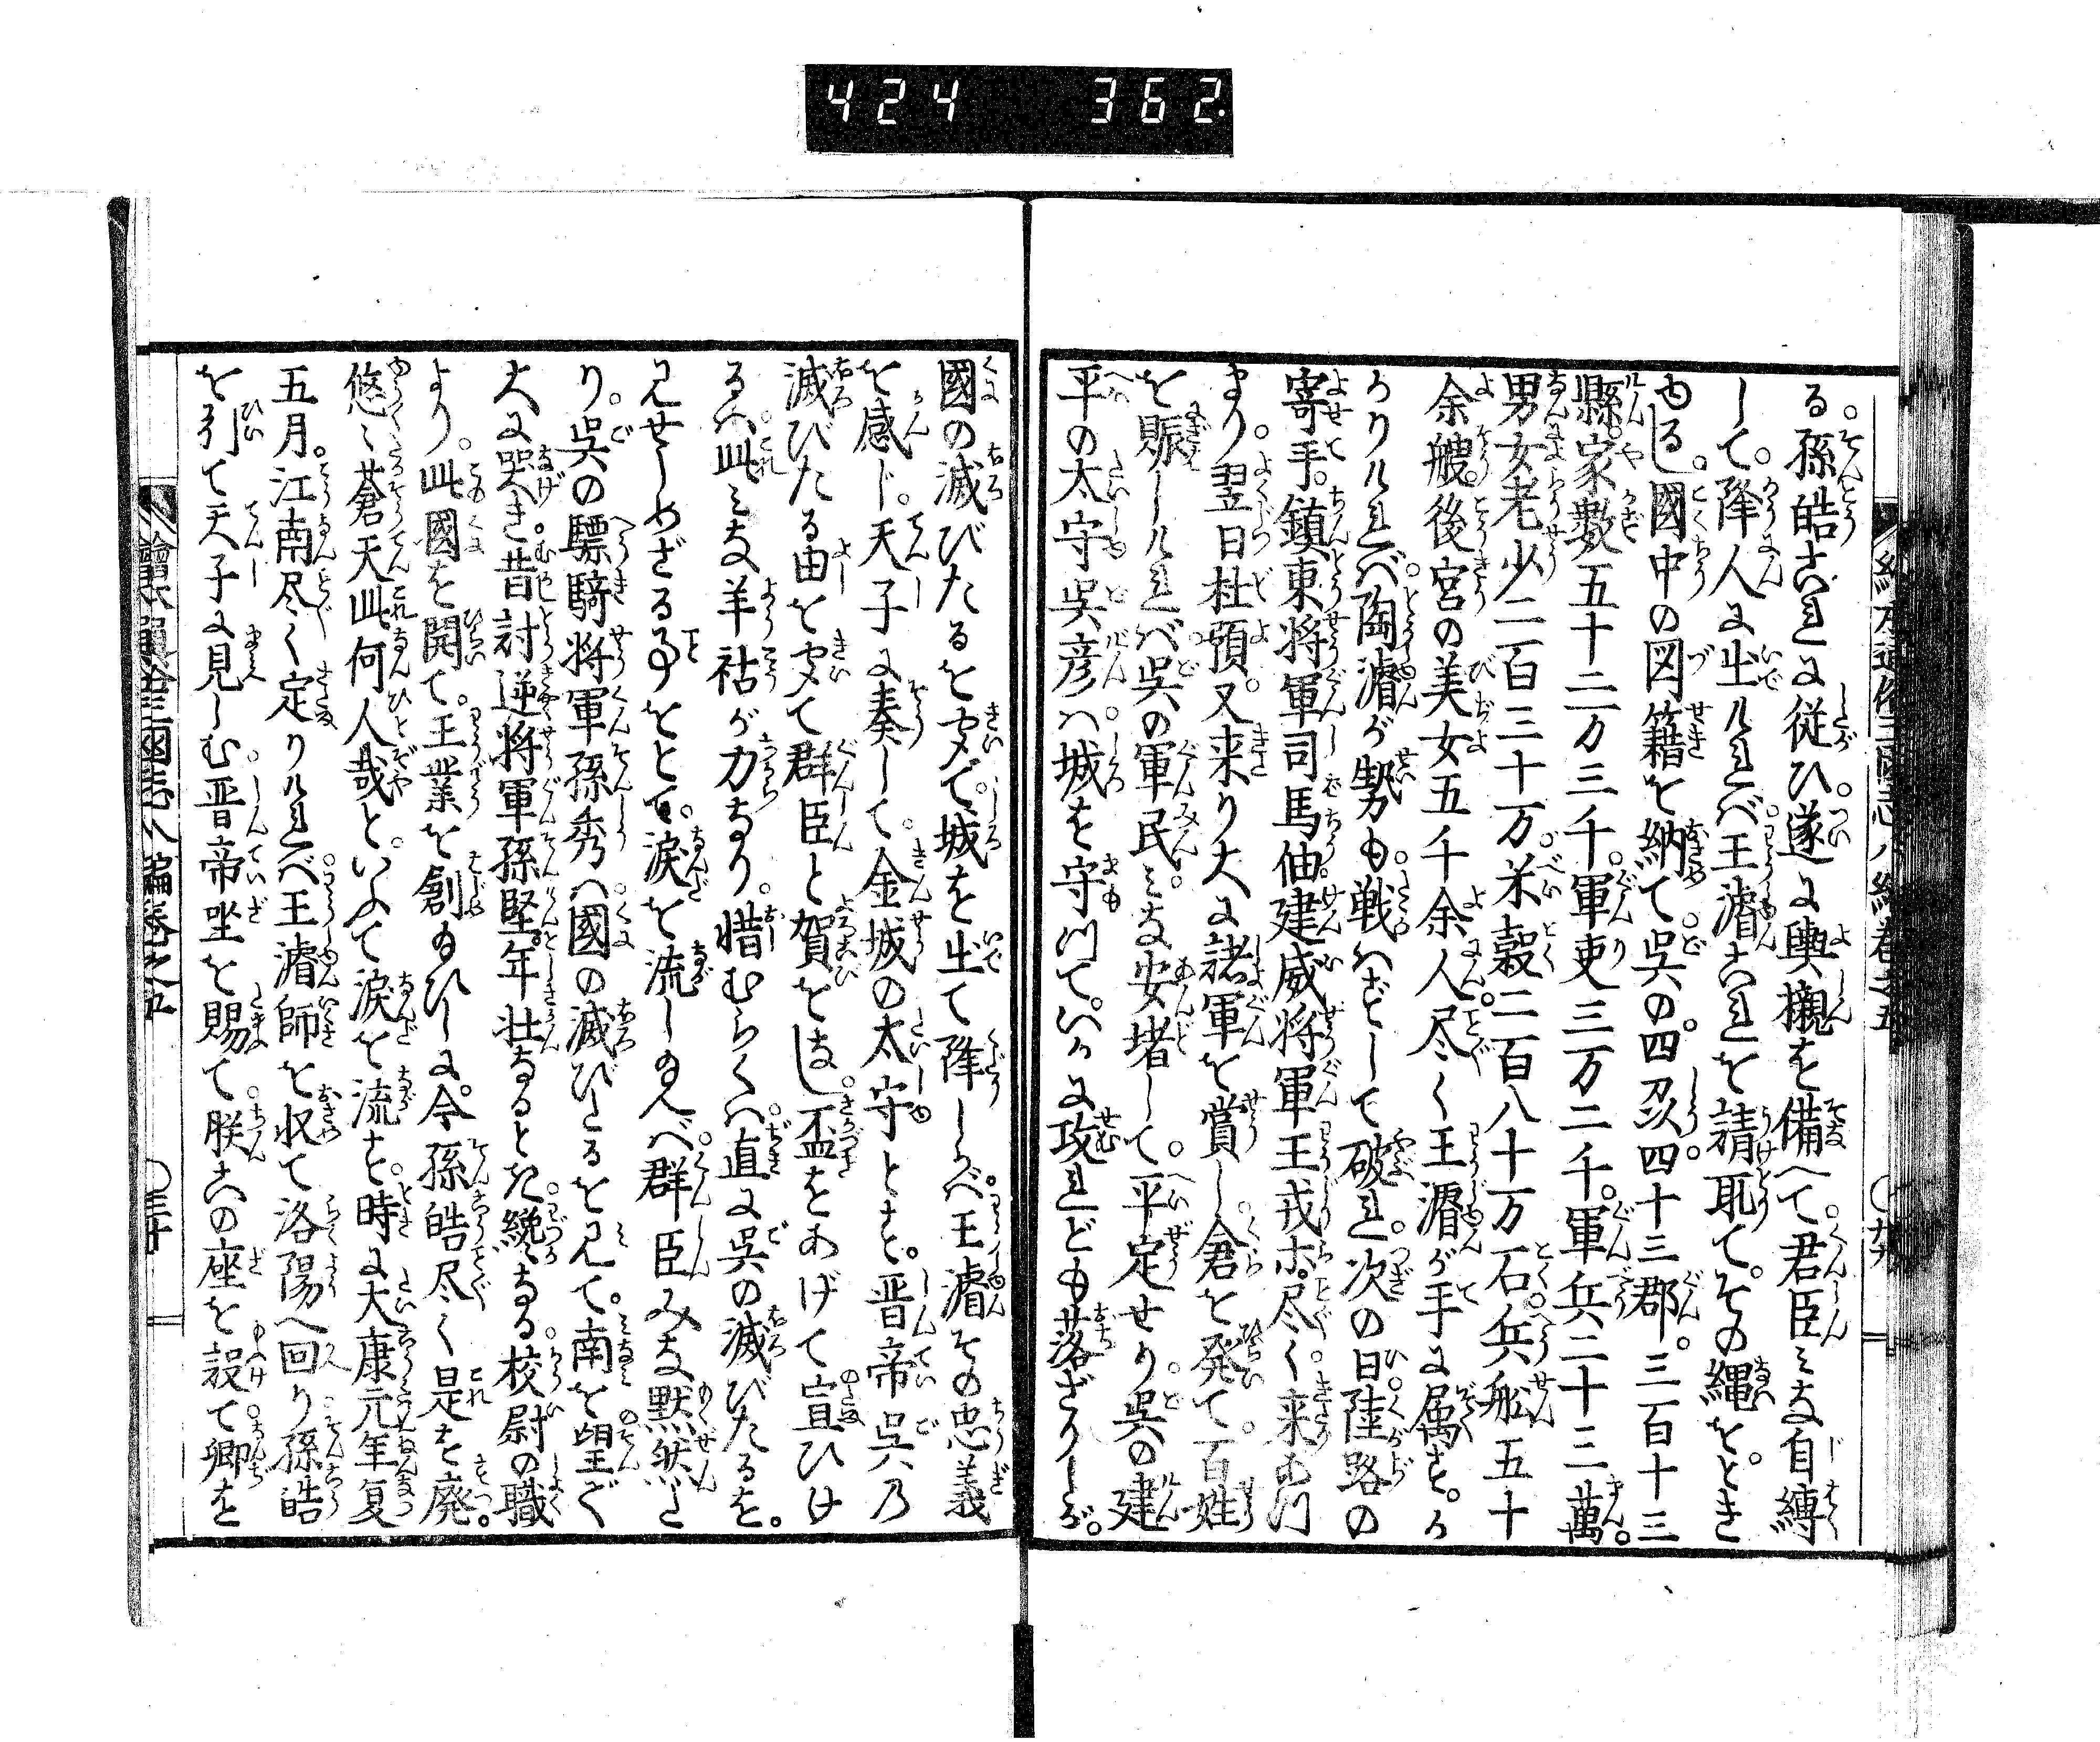 424 362
る。孫皓これに従ひ。遂に輿櫬を備へて。君臣みな自縛
して。降人に出ければ。王濬これを請取て。その縄をとき
ゆるし。國中の図籍を納て。呉の四忍。四十三郡。三百十三
縣。家數五十二万三千。軍吏三万二千。軍兵二十三萬。
男女老少二百三十万。米穀二百八十万石。兵舩五十
余艘。後宮の美女五千余人。尽く王濬が手に属す。か
かりければ。陶濬が勢も。戦はずして破れ。次の日。陸路の
寄手。鎮東将軍司馬伷。建威将軍王戎ホ。尽く。来あつ
まり。翌日杜預。又来り大に諸軍を賞し。倉を発て。百姓
を賑しければ。呉の軍民。みな安堵して。平定せり。呉の建
平の太守呉彦は。城を守つて。いかに攻れども落ざりしが。
國の滅びたるをきいて。城を出て降しかば。王濬その忠義
を感じ。天子に奏して。金城の太守とす。晋帝呉乃
滅びたる由をきいて。群臣と賀をなし。盃をあげて宣ひけ
るは。此みな羊祜が力なり。惜むらくは。直に呉の滅びたるを。
見せしめざる事をとて。涙を流し玉へば。群臣みな默然た
り。呉の驃騎将軍孫秀は。國の滅びたるを見て。南を望で
大に哭き。昔討逆将軍孫堅。年壮なるとき。纔なる校尉の職
より。此國を開て。王業を創玉ひしに。今孫皓尽く是を廃。
悠〻蒼天此何人哉と。いふて涙を流す。時に大康元年夏
五月。江南尽く定りければ。王濬師を収て洛陽へ回り。孫皓
を引て天子に見しむ。晋帝坐を賜て。朕この座を設て。卿を
三十